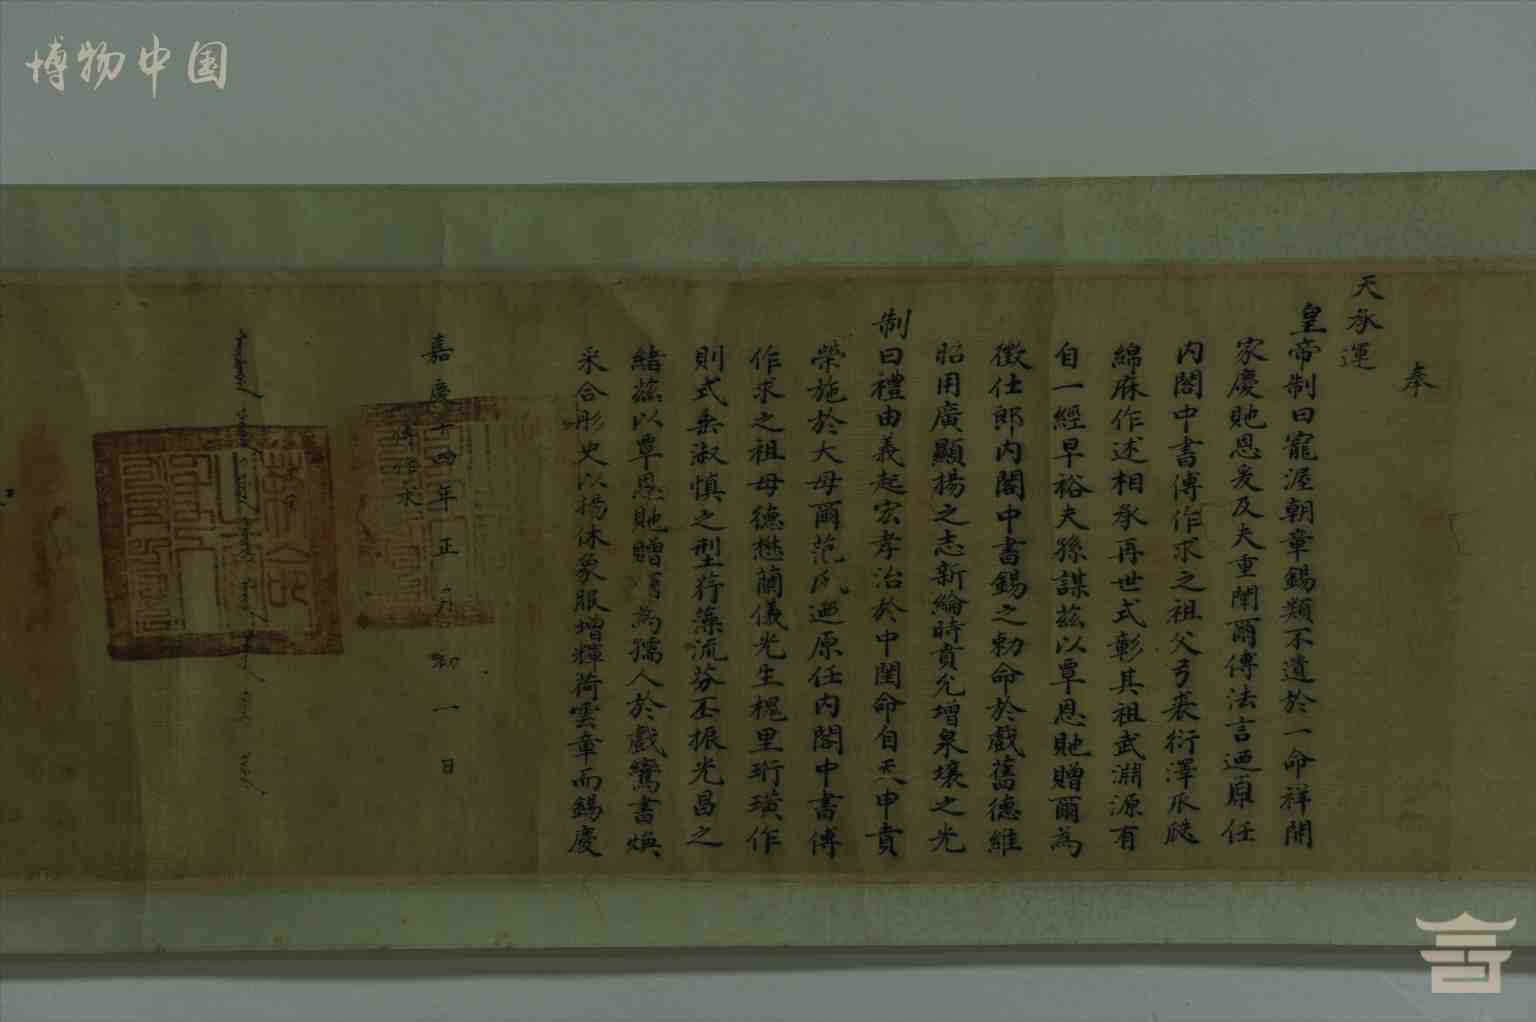 博物中国
奉
天承運
皇帝制曰寵渥朝章錫類不遺於一命祥開
家慶貤恩爰及夫重闈爾傅法言迺原任
内閣中書傅作求之祖父弓裘衍澤瓜瓞
綿庥作述相承再世式彰其祖武淵源有
自一經早裕夫孫謀茲以覃恩貤贈爾為
徵仕郎内閣中書錫之勅命於戲舊德維
昭用廣顯揚之志新綸時賁允增泉壤之光
制曰禮由義起宏孝治於中閨命自天申賁
榮施於大母爾范氏迺原任内閣中書傅
作求之祖母德懋蘭儀光生槐里珩璜作
則式垂淑慎之型荇藻流芬丕振光昌之
緒茲以覃恩貤贈爾為孺人於戲鸞書煥
采合彤史以揚休象服增輝荷雲章而錫慶
嘉慶十四年正月初一日
傅作求